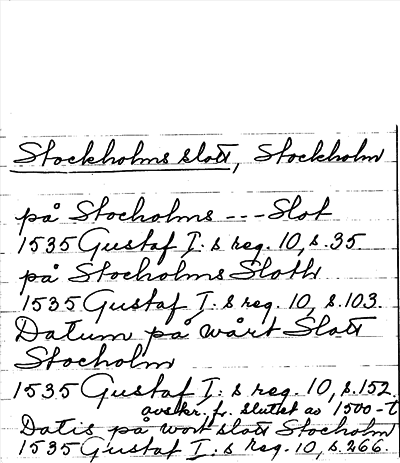 Stockholms slott, Stockholm
på Stocholms --- Slot
1535 Gustaf I:s reg. 10, s. 35
på Stocholms Sloth
1535 Gustaf I:s reg. 10, s. 103.
Datum på wårt Slott
Stocholm
1535 Gustaf I:s reg. 10, s. 152.
avskr. fr. slutet av 1500-t
Datis på wort slott Stocholm
1535 Gustaf I:s reg. 10, s. 266.